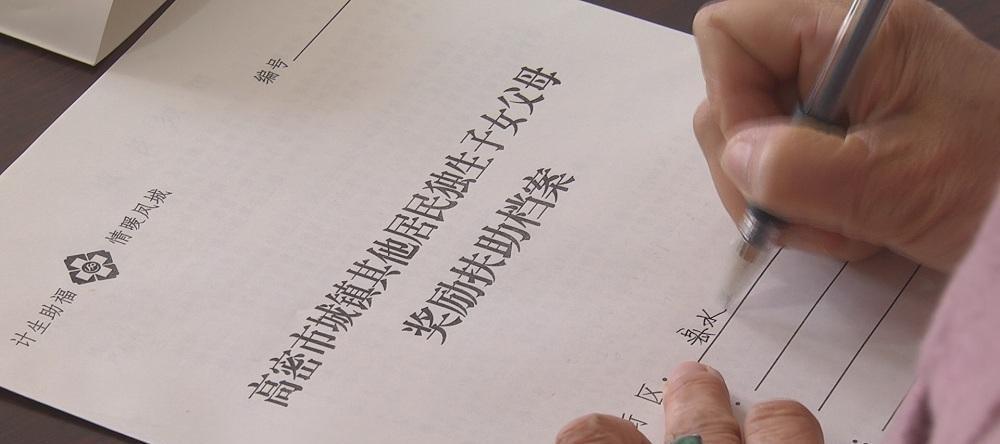 编号
计生助福 情暖凤城
高密市城镇其他居民独生子女父母
奖励扶助档案
区: